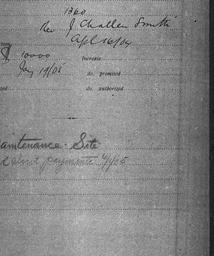 1360
Rev J. Challen Smith
Apl 16/04
10000 Increase
Jany 19/05 do. promised
do. authorized
aintenance. Site
payments 4/1/05